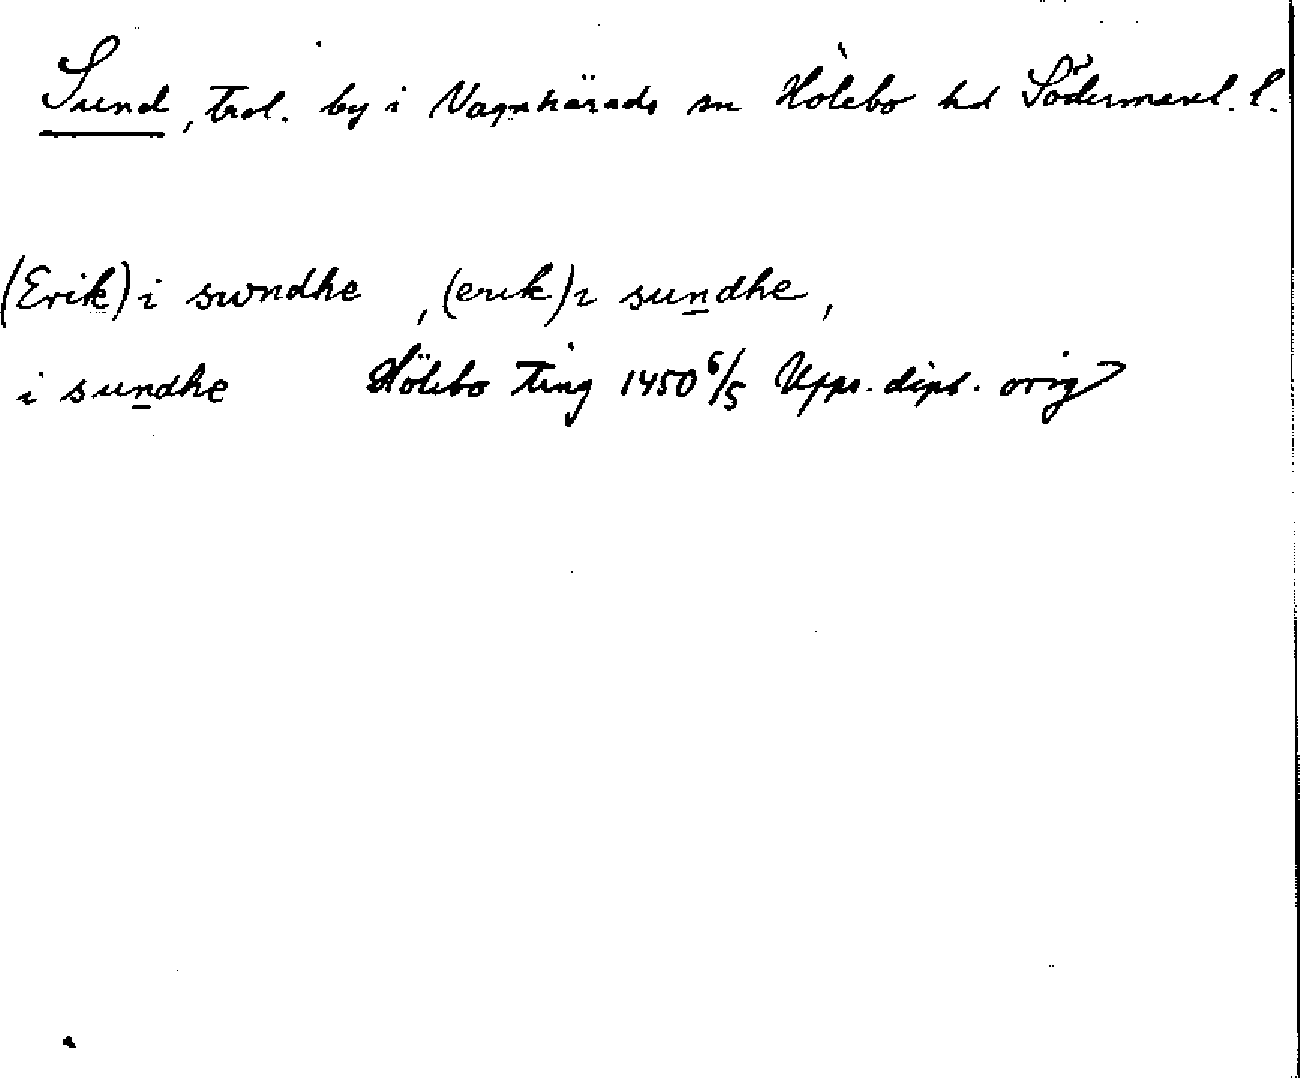 Sund, trol. by i Vagnhärads sn Hölebo hd Södermanl. l.
(Erik) i swndhe, (erik) i sundhe,
i sundhe Hölebo Ting 1450 6/5 Upps. dipl. orig